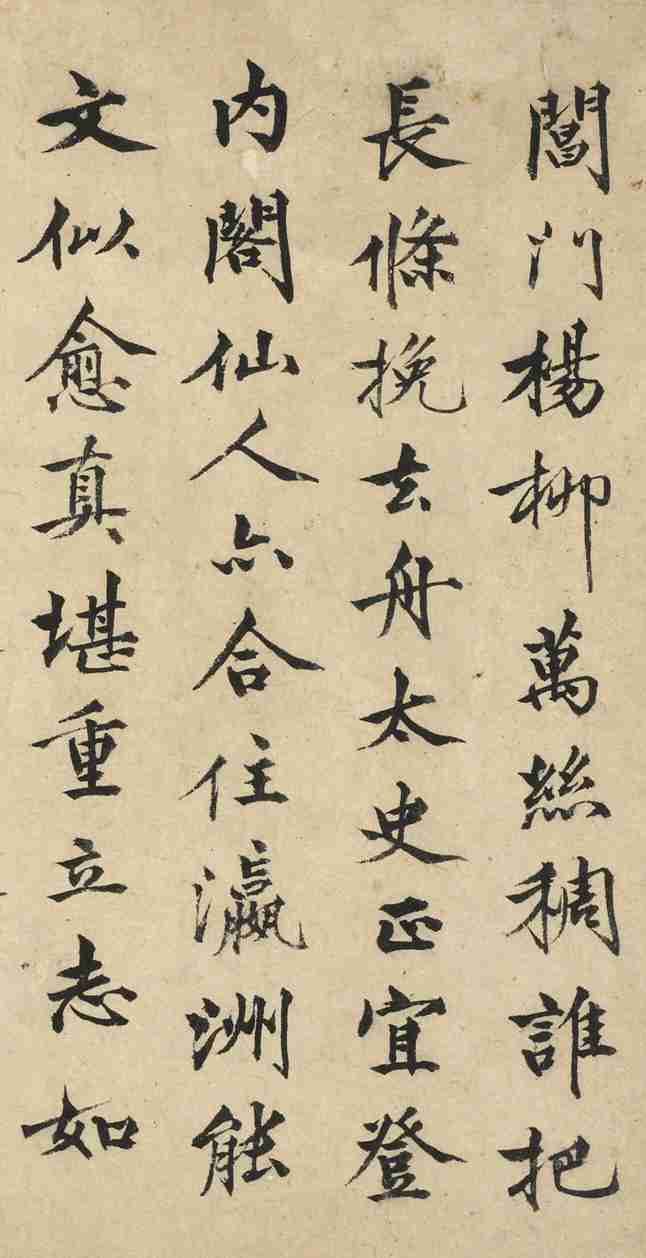 閶門楊柳萬絲稠誰把
長條挽去舟太史正宜登
內閣仙人亦合住瀛洲能
文似愈真堪重立志如